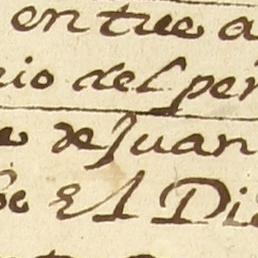 en tue a
io del per
e de Juan
El Di